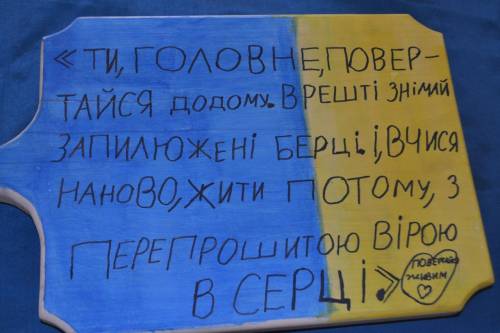 «ТИ, ГОЛОВНЕ, ПОВЕР-
ТАЙСЯ ДОДОМУ. ВРЕШТІ ЗНІМАЙ
ЗАПИЛЮЖЕНІ БЕРЦІ. І, ВЧИСЯ
НАНОВО, ЖИТИ ПОТОМУ, З
ПЕРЕПРОШИТОЮ ВІРОЮ
В СЕРЦІ.»
живим